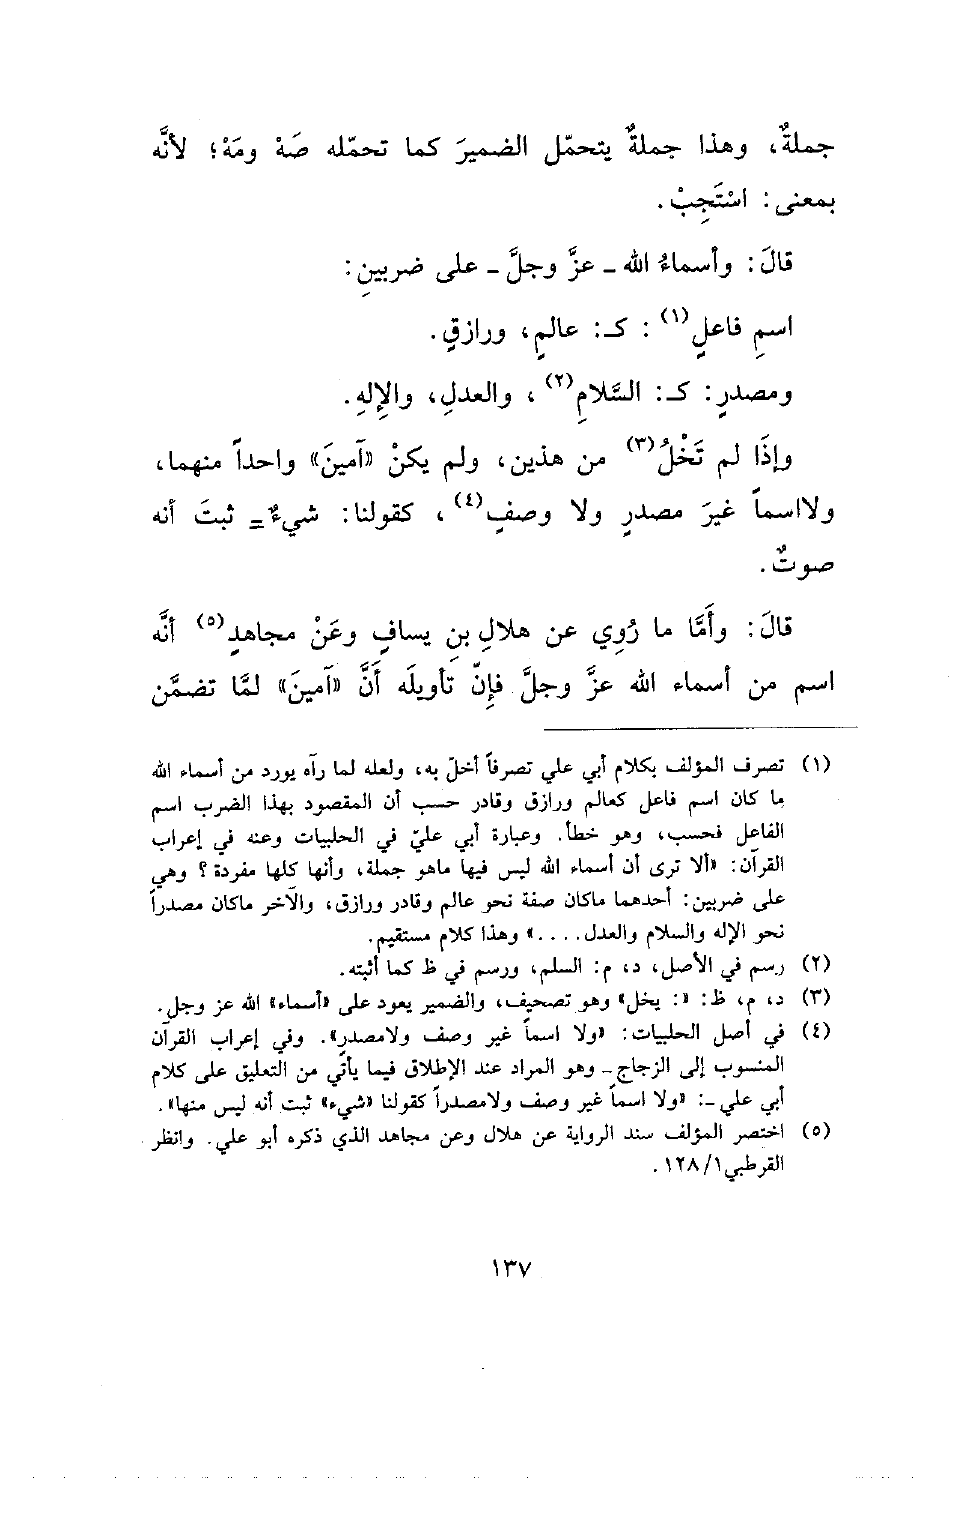 جملةٌ، وهذا جملةٌ يتحمّل الضميرَ كما تحمّله صَهْ ومَهْ؛ لأنَّه
بمعنى: اسْتَجِبْ.
قالَ: وأسماءُ الله ـ عزَّ وجلَّ ـ على ضربينِ:
اسمِ فاعلٍ(١) : كـ: عالمٍ، ورازقٍ.
ومصدرٍ: كـ: السَّلامِ(٢) ، والعدلِ، والإِلهِ.
وإذَا لم تَخْلُ(٣) من هذين، ولم يكنْ «آمينَ» واحداً منهما،
ولااسماً غيرَ مصدرٍ ولا وصفٍ(٤) ، كقولنا: شيءٌ ـ ثبتَ أنه
صوتٌ.
قالَ: وأَمَّا ما رُوِي عن هلالِ بنِ يسافٍ وعَنْ مجاهدٍ(٥) أنَّه
اسم من أسماء الله عزَّ وجلَّ فإِنّ تأويلَه أَنَّ «آمينَ» لمَّا تضمَّن
(١) تصرف المؤلف بكلام أبي علي تصرفاً أخلّ به، ولعله لما رآه يورد من أسماء الله
ما كان اسم فاعل كعالم ورازق وقادر حسب أن المقصود بهذا الضرب اسم
الفاعل فحسب، وهو خطأ. وعبارة أبي عليّ في الحلبيات وعنه في إعراب
القرآن: «ألا ترى أن أسماء الله ليس فيها ماهو جملة، وأنها كلها مفردة؟ وهي
على ضربين: أحدهما ماكان صفة نحو عالم وقادر ورازق، والآخر ماكان مصدراً
نحو الإله والسلام والعدل....» وهذا كلام مستقيم.
(٢) رسم في الأصل، د، م: السلم، ورسم في ظ كما أثبته.
(٣) د، م، ظ: «: يخل» وهو تصحيف، والضمير يعود على «أسماء» الله عز وجل.
(٤) في أصل الحلبيات: «ولا اسماً غير وصف ولامصدرٍ». وفي إعراب القرآن
المنسوب إلى الزجاج ـ وهو المراد عند الإطلاق فيما يأتي من التعليق على كلام
أبي علي ـ: «ولا اسماً غير وصف ولامصدراً كقولنا «شيء» ثبت أنه ليس منها».
(٥) اختصر المؤلف سند الرواية عن هلال وعن مجاهد الذي ذكره أبو علي. وانظر
القرطبي١/١٢٨.
١٣٧